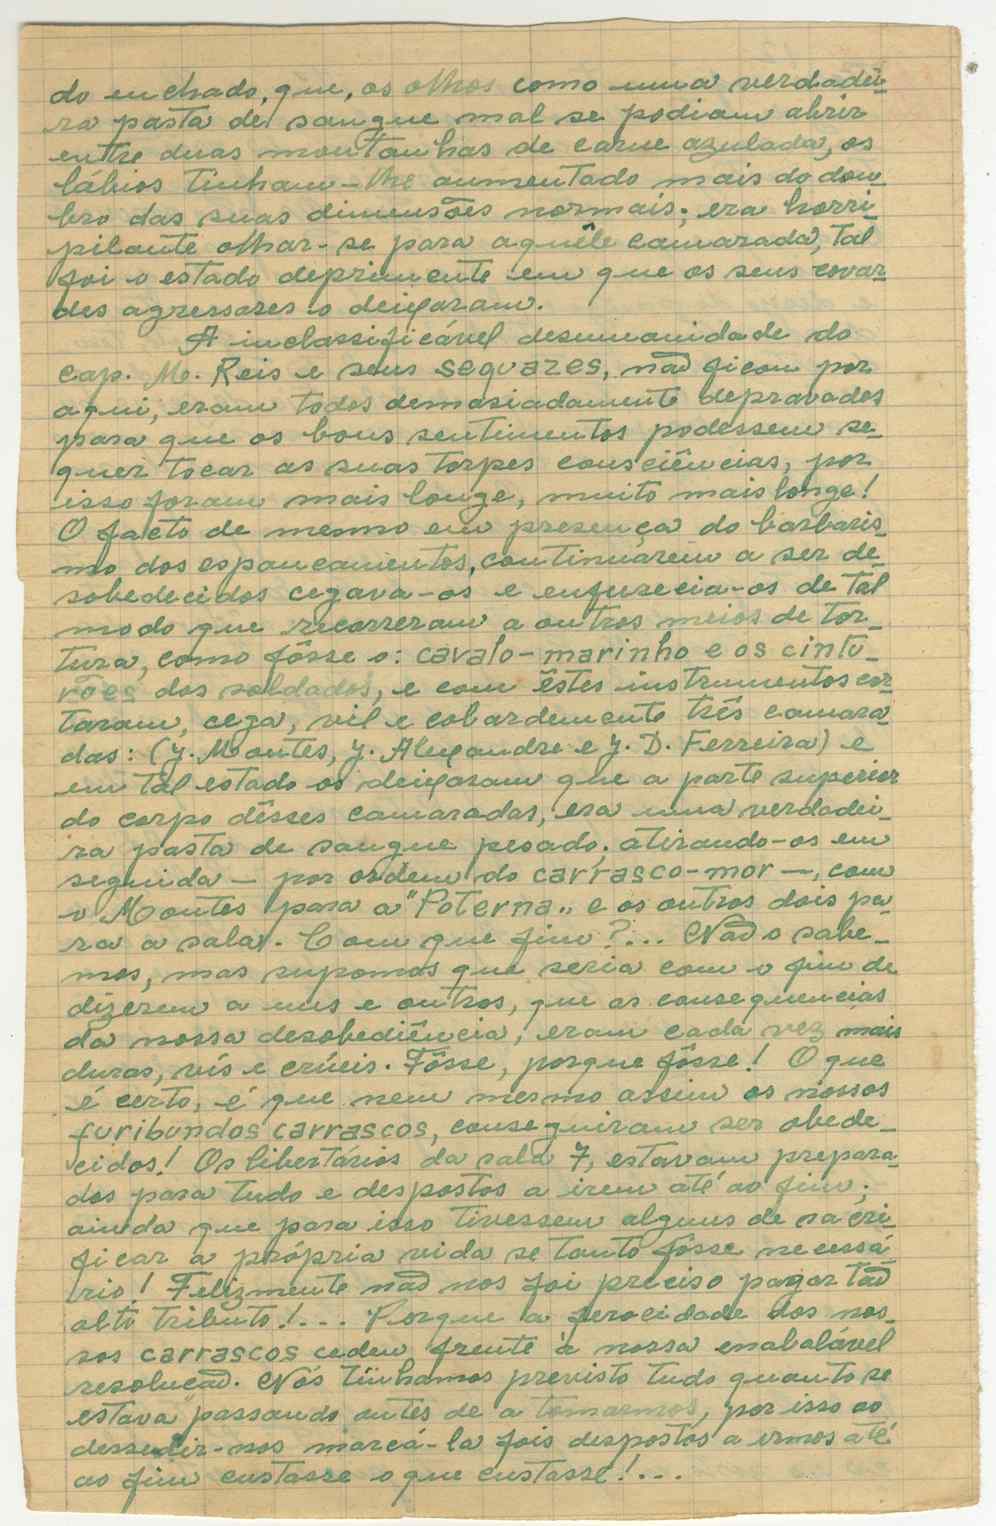 do enchado, que, os olhos como uma verdadei-
ra pasta de sangue mal se podiam abrir
entre duas montanhas de carne azulada, os
lábios tinham-lhe aumentado mais do dou-
bro das suas dimensões normais; era horri-
pilante olhar-se para aquêle camarada, tal
foi o estado deprimente em que os seus covar-
des agressores o deixaram.
A inclassificável desumanidade do
Cap. M. Reis e seus sequazes, não ficou por
aqui, eram todos demasiadamente depravados
para que os bons sentimentos podessem se-
quer tocar as suas torpes consciências, por
isso foram mais longe, muito mais longe!
O facto de mesmo em presença do barbaris-
mo dos espancamentos, continuarem a ser de-
sobedecidos cegava-os e enfurecia-os de tal
modo que recorreram a outros meios de tor-
tura, como fôsse o: cavalo-marinho e os cintu-
rões dos soldados, e com êstes instrumentos cor-
taram, cega, vil e cobardemente três camara-
das: (J. Montes, J. Alexandre e J. D. Ferreira) e
em tal estado os deixaram que a parte superior
do corpo dêsses camaradas, era uma verdadei-
ra pasta de sangue pesado; atirando-os em
seguida — por ordem do carrasco-mor —, com
o Montes para a "Poterna„ e os outros dois pa-
ra a sala. Com que fim?... Não o sabe-
mos, mas supomos que seria com o fim de
dizerem a uns e outros, que as consequencias
da nossa desobediência, eram cada vez mais
duras, vís e crúeis. Fôsse, porque fôsse! O que
é certo, é que nem mesmo assim os nossos
furibundos carrascos, conseguiram ser obede-
cidos! Os libertários da sala 7, estavam prepara-
dos para tudo e despostos a irem até ao fim;
ainda que para isso tivessem alguns de sacri-
ficar a própria vida se tanto fôsse necessá-
rio! Felizmente não nos foi preciso pagar tão
alto tributo!... Porque a ferocidade dos nos-
sos carrascos cedeu frente à nossa enabalável
resolução. Nós tinhamos previsto tudo quanto se
estava passando antes de a tomarmos, por isso ao
marcá-la fois despostos a irmos até
ao fim custasse o que custasse!...